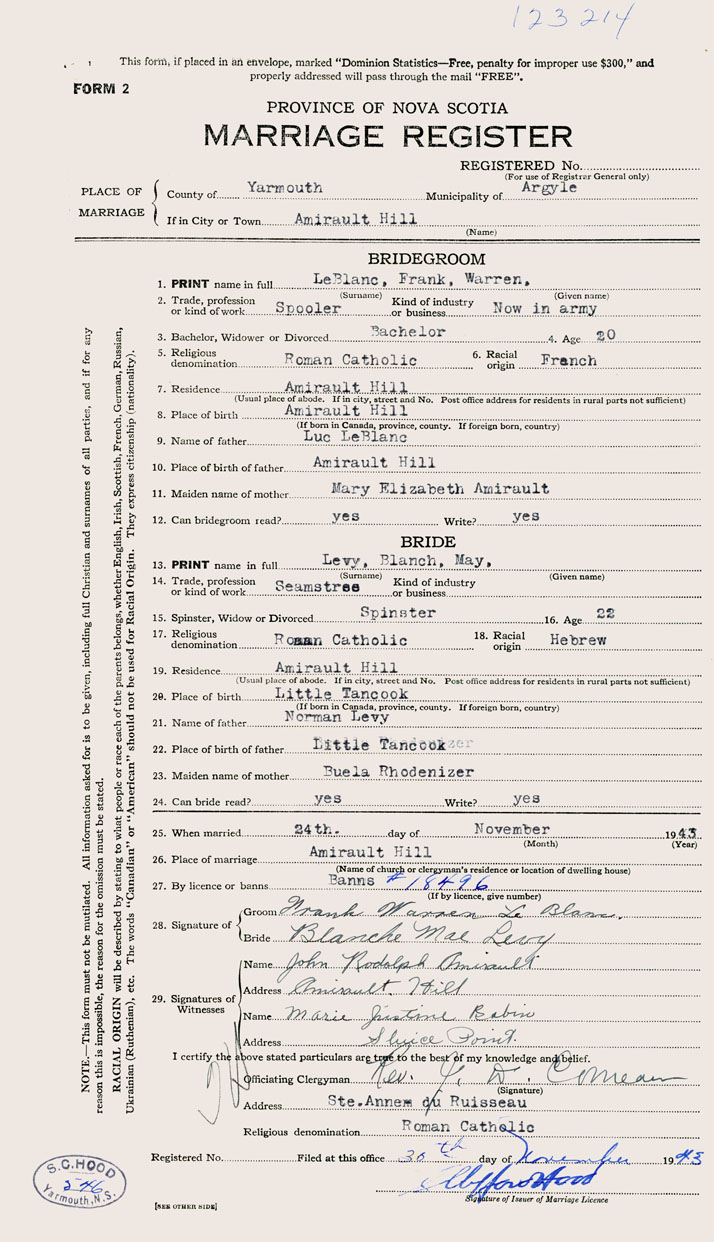 123214
This form, if placed in an envelope, marked "Dominion Statistics—Free, penalty for improper use $300," and
properly addressed will pass through the mail "FREE".
FORM 2
PROVINCE OF NOVA SCOTIA
MARRIAGE REGISTER
REGISTERED No.
(For use of Registrar General only)
PLACE OF MARRIAGE
County of Yarmouth Municipality of Argyle
If in City or Town Amirault Hill
(Name)
BRIDEGROOM
1. PRINT name in full LeBlanc, Frank, Warren,
(Surname) (Given name)
2. Trade, profession or kind of work Spooler Kind of industry or business Now in army
3. Bachelor, Widower or Divorced Bachelor 4. Age 20
5. Religious denomination Roman Catholic 6. Racial origin French
7. Residence Amirault Hill
(Usual place of abode. If in city, street and No. Post office address for residents in rural parts not sufficient)
8. Place of birth Amirault Hill
(If born in Canada, province, county. If foreign born, country)
9. Name of father Luc LeBlanc
10. Place of birth of father Amirault Hill
11. Maiden name of mother Mary Elizabeth Amirault
12. Can bridegroom read? yes Write? yes
BRIDE
13. PRINT name in full Levy, Blanch, May,
(Surname) (Given name)
14. Trade, profession or kind of work Seamstree Kind of industry or business
15. Spinster, Widow or Divorced Spinster 16. Age 22
17. Religious denomination Roman Catholic 18. Racial origin Hebrew
19. Residence Amirault Hill
(Usual place of abode. If in city, street and No. Post office address for residents in rural parts not sufficient)
20. Place of birth Little Tancook
(If born in Canada, province, county. If foreign born, country)
21. Name of father Norman Levy
22. Place of birth of father Little Tancook
23. Maiden name of mother Buela Rhodenizer
24. Can bride read? yes Write? yes
25. When married 24th. day of November 1943
(Month) (Year)
26. Place of marriage Amirault Hill
(Name of church or clergyman's residence or location of dwelling house)
27. By licence or banns Banns #18496
(If by licence, give number)
28. Signature of
Groom Frank Warren Le Blanc.
Bride Blanche Mae Levy
29. Signatures of Witnesses
Name John Rodolph Amirault
Address Amirault. Hill
Name Marie Justine Babin
Address Sluice Point.
I certify the above stated particulars are true to the best of my knowledge and belief.
Officiating Clergyman Rev. D. Comeau
(Signature)
Address Ste.Annem du Ruisseau
Religious denomination Roman Catholic
Registered No. Filed at this office 30th day of November 1943
Clifford Hood
Signature of Issuer of Marriage Licence
[SEE OTHER SIDE]
S.C.HOOD
546
Yarmouth, N.S.
NOTE.—This form must not be mutilated. All information asked for is to be given, including full Christian and surnames of all parties, and if for any
reason this is impossible, the reason for the omission must be stated.
RACIAL ORIGIN will be described by stating to what people or race each of the parents belongs, whether English, Irish, Scottish, French, German, Russian,
Ukrainian (Ruthenian), etc. The words "Canadian" or "American" should not be used for Racial Origin. They express citizenship (nationality).